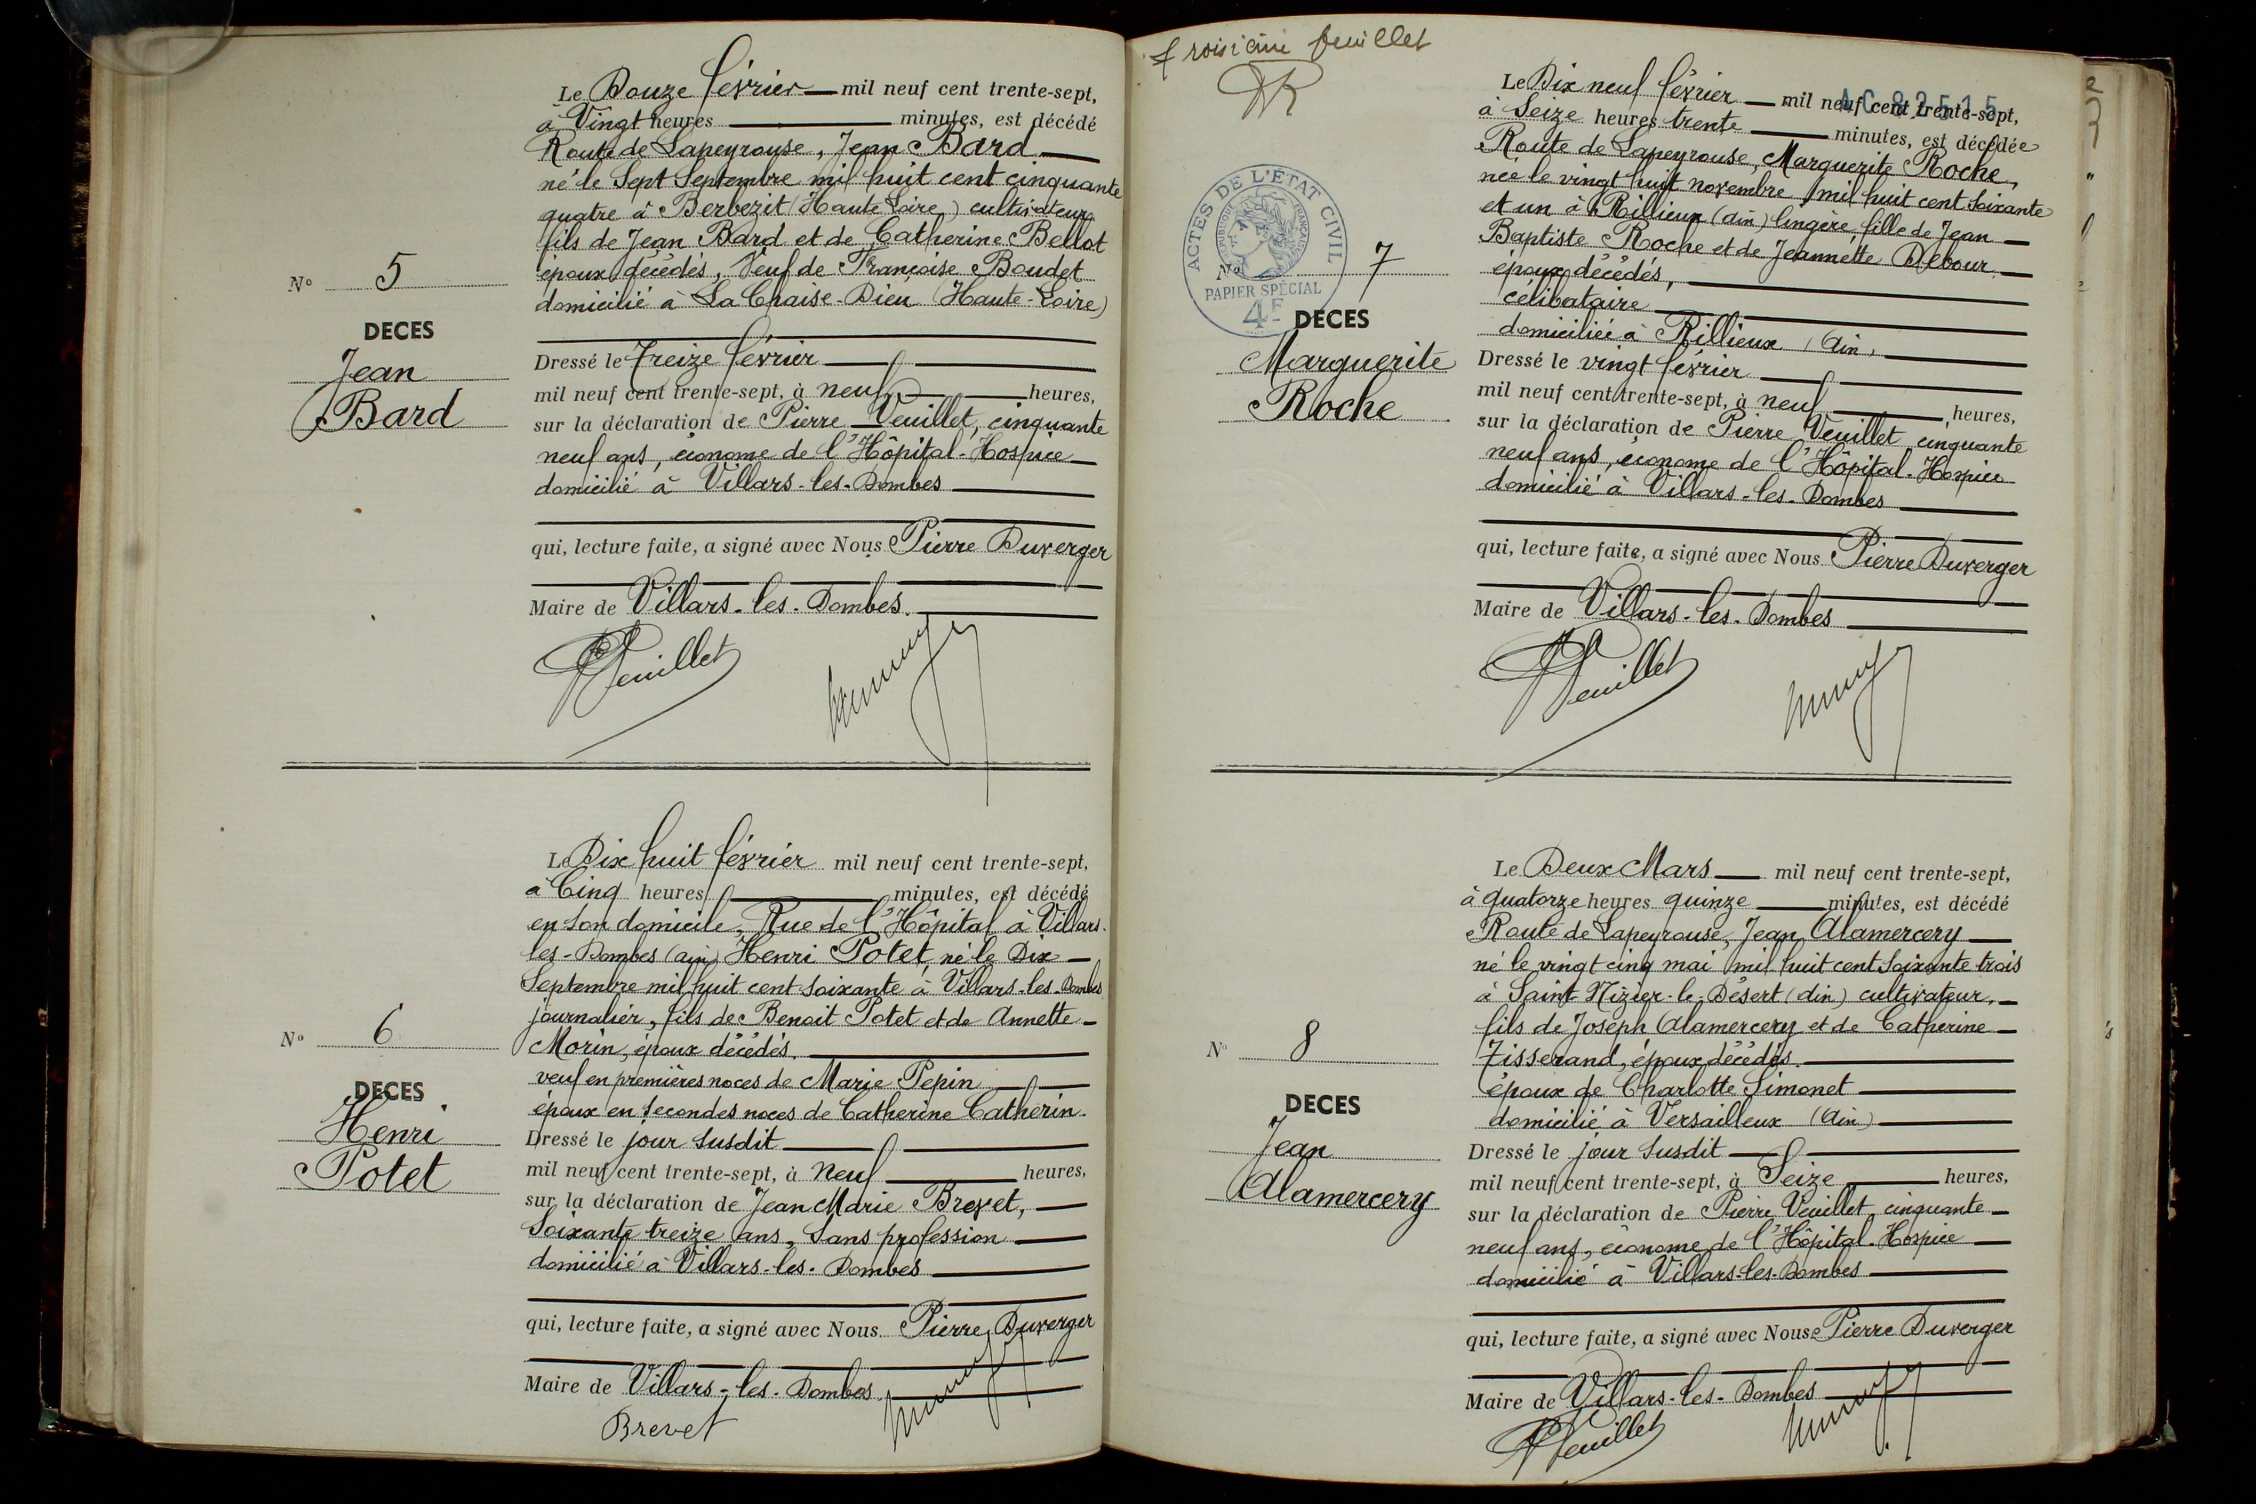 Le Douze février mil neuf cent trente-sept,
à Vingt heures minutes, est décédé
Route de Lapeyrouse, Jean Bard
né le Sept Septembre mil huit cent cinquante
quatre à Berbezit (Haute Loire) cultivateur
fils de Jean Bard et de Catherine Bellot
époux décédés, Veuf de Françoise Boudet
domicilié à La Chaise-Dieu (Haute-Loire)
N° 5
DECES
Jean
Bard
Dressé le Treize février
mil neuf cent trente-sept, à neuf heures,
sur la déclaration de Pierre Veuillet, cinquante
neuf ans, économe de l'Hôpital-Hospice
domicilié à Villars-les-Dombes
qui, lecture faite, a signé avec Nous Pierre Duverger
Maire de Villars-les-Dombes.
PVeuillet
Le Dix huit février mil neuf cent trente-sept,
à Cinq heures minutes, est décédé
en son domicile, Rue de l'Hôpital à Villars-
les-Dombes (ain) Henri Potet, né le Dix
Septembre mil huit cent soixante à Villars-les-Dombes
journalier, fils de Benoit Potet et de Annette
Morin, époux décédés.
veuf en premières noces de Marie Pepin
époux en secondes noces de Catherine Catherin.
N° 6
DECES
Henri
Potet
Dressé le jour susdit
mil neuf cent trente-sept, à neuf heures,
sur la déclaration de Jean Marie Brevet,
soixante treize ans, sans profession
domicilié à Villars-les-Dombes
qui, lecture faite, a signé avec Nous Pierre Duverger
Maire de Villars-les-Dombes
Brevet
troisième feuillet
DR
AC 82515
ACTES DE L'ETAT CIVIL
REPUBLIQUE FRANÇAISE
PAPIER SPÉCIAL
4F
Le Dix neuf février mil neuf cent trente-sept,
à Seize heures trente minutes, est décédée
Route de Lapeyrouse, Marguerite Roche,
née le vingt huit novembre mil huit cent soixante
et un à Rillieux (ain) lingère, fille de Jean
Baptiste Roche et de Jeannette Debour
époux décédés,
célibataire
domiciliée à Rillieux (ain)
N° 7
DECES
Marguerite
Roche
Dressé le vingt février
mil neuf cent trente-sept, à neuf heures,
sur la déclaration de Pierre Veuillet, cinquante
neuf ans, économe de l'Hôpital-Hospice
domicilié à Villars-les-Dombes
qui, lecture faite, a signé avec Nous Pierre Duverger
Maire de Villars-les-Dombes
PVeuillet
Le Deux Mars mil neuf cent trente-sept,
à quatorze heures quinze minutes, est décédé
Route de Lapeyrouse, Jean Alamercery
né le vingt cinq mai mil huit cent soixante trois
à Saint Nizier-le-Désert (ain) cultivateur,
fils de Joseph Alamercery et de Catherine
Tisserand, époux décédés.
époux de Charlotte Simonet
domicilié à Versailleux (ain)
N° 8
DECES
Jean
Alamercery
Dressé le jour susdit
mil neuf cent trente-sept, à Seize heures,
sur la déclaration de Pierre Veuillet, cinquante
neuf ans, économe de l'Hôpital-Hospice
domicilié à Villars-les-Dombes
qui, lecture faite, a signé avec Nous Pierre Duverger
Maire de Villars-les-Dombes
PVeuillet